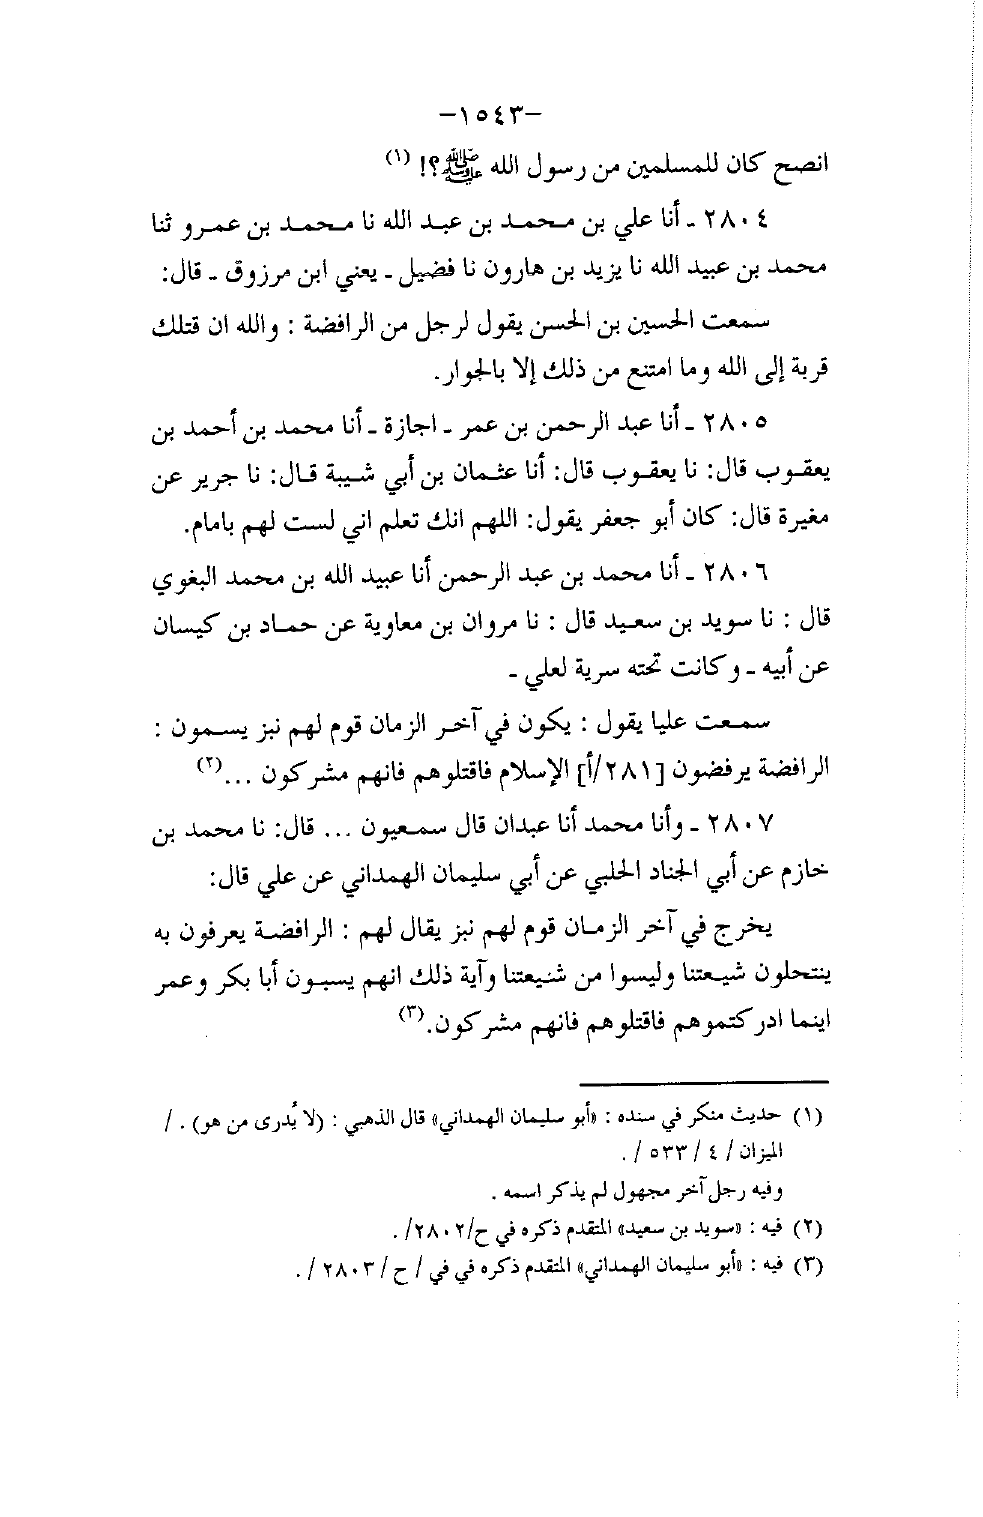 -١٥٤٣-
انصح كان للمسلمين من رسول الله ﷺ؟! (١)
٢٨٠٤ ـ أنا علي بن محمد بن عبد الله نا محمد بن عمرو ثنا
محمد بن عبيد الله نا يزيد بن هارون نا فضيل ـ يعني ابن مرزوق ـ قال:
سمعت الحسين بن الحسن يقول لرجل من الرافضة : والله ان قتلك
قربة إلى الله وما امتنع من ذلك إلا بالجوار.
٢٨٠٥ ـ أنا عبد الرحمن بن عمر ـ اجازة ـ أنا محمد بن أحمد بن
يعقوب قال: نا يعقوب قال: أنا عثمان بن أبي شيبة قال: نا جرير عن
مغيرة قال: كان أبو جعفر يقول: اللهم انك تعلم اني لست لهم بامام.
٢٨٠٦ ـ أنا محمد بن عبد الرحمن أنا عبيد الله بن محمد البغوي
قال : نا سويد بن سعيد قال : نا مروان بن معاوية عن حماد بن كيسان
عن أبيه ـ وكانت تحته سرية لعلي ـ
سمعت عليا يقول : يكون في آخر الزمان قوم لهم نبز يسمون :
الرافضة يرفضون [٢٨١/أ] الإسلام فاقتلوهم فانهم مشركون ...(٢)
٢٨٠٧ ـ وأنا محمد أنا عبدان قال سمعيون ... قال: نا محمد بن
خازم عن أبي الجناد الحلبي عن أبي سليمان الهمداني عن علي قال:
يخرج في آخر الزمان قوم لهم نبز يقال لهم : الرافضة يعرفون به
ينتحلون شيعتنا وليسوا من شنيعتنا وآية ذلك انهم يسبون أبا بكر وعمر
اينما ادركتموهم فاقتلوهم فانهم مشركون.(٣)
(١) حديث منكر في سنده : «أبو سليمان الهمداني» قال الذهبي : (لا يُدرى من هو) . /
الميزان / ٤ / ٥٣٣ / .
وفيه رجل آخر مجهول لم يذكر اسمه .
(٢) فيه : «سويد بن سعيد» المتقدم ذكره في ح/٢٨٠٢/ .
(٣) فيه : «أبو سليمان الهمداني» المتقدم ذكره في في / ح / ٢٨٠٣ / .